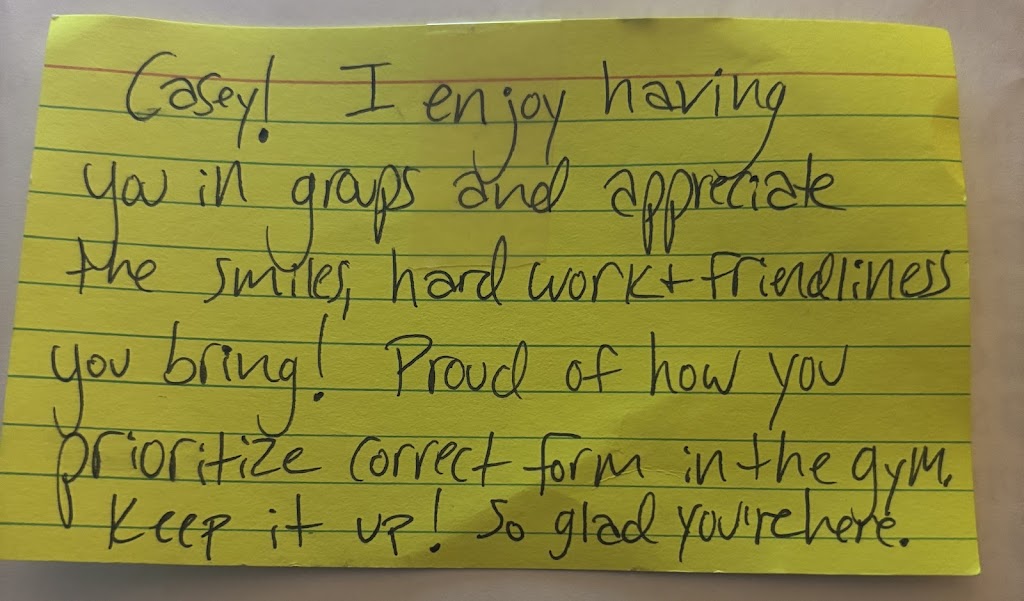 Casey! I enjoy having
you in groups and appreciate
the smiles, hard work + friendliness
you bring! Proud of how you
prioritize correct form in the gym.
Keep it up! So glad you're here.